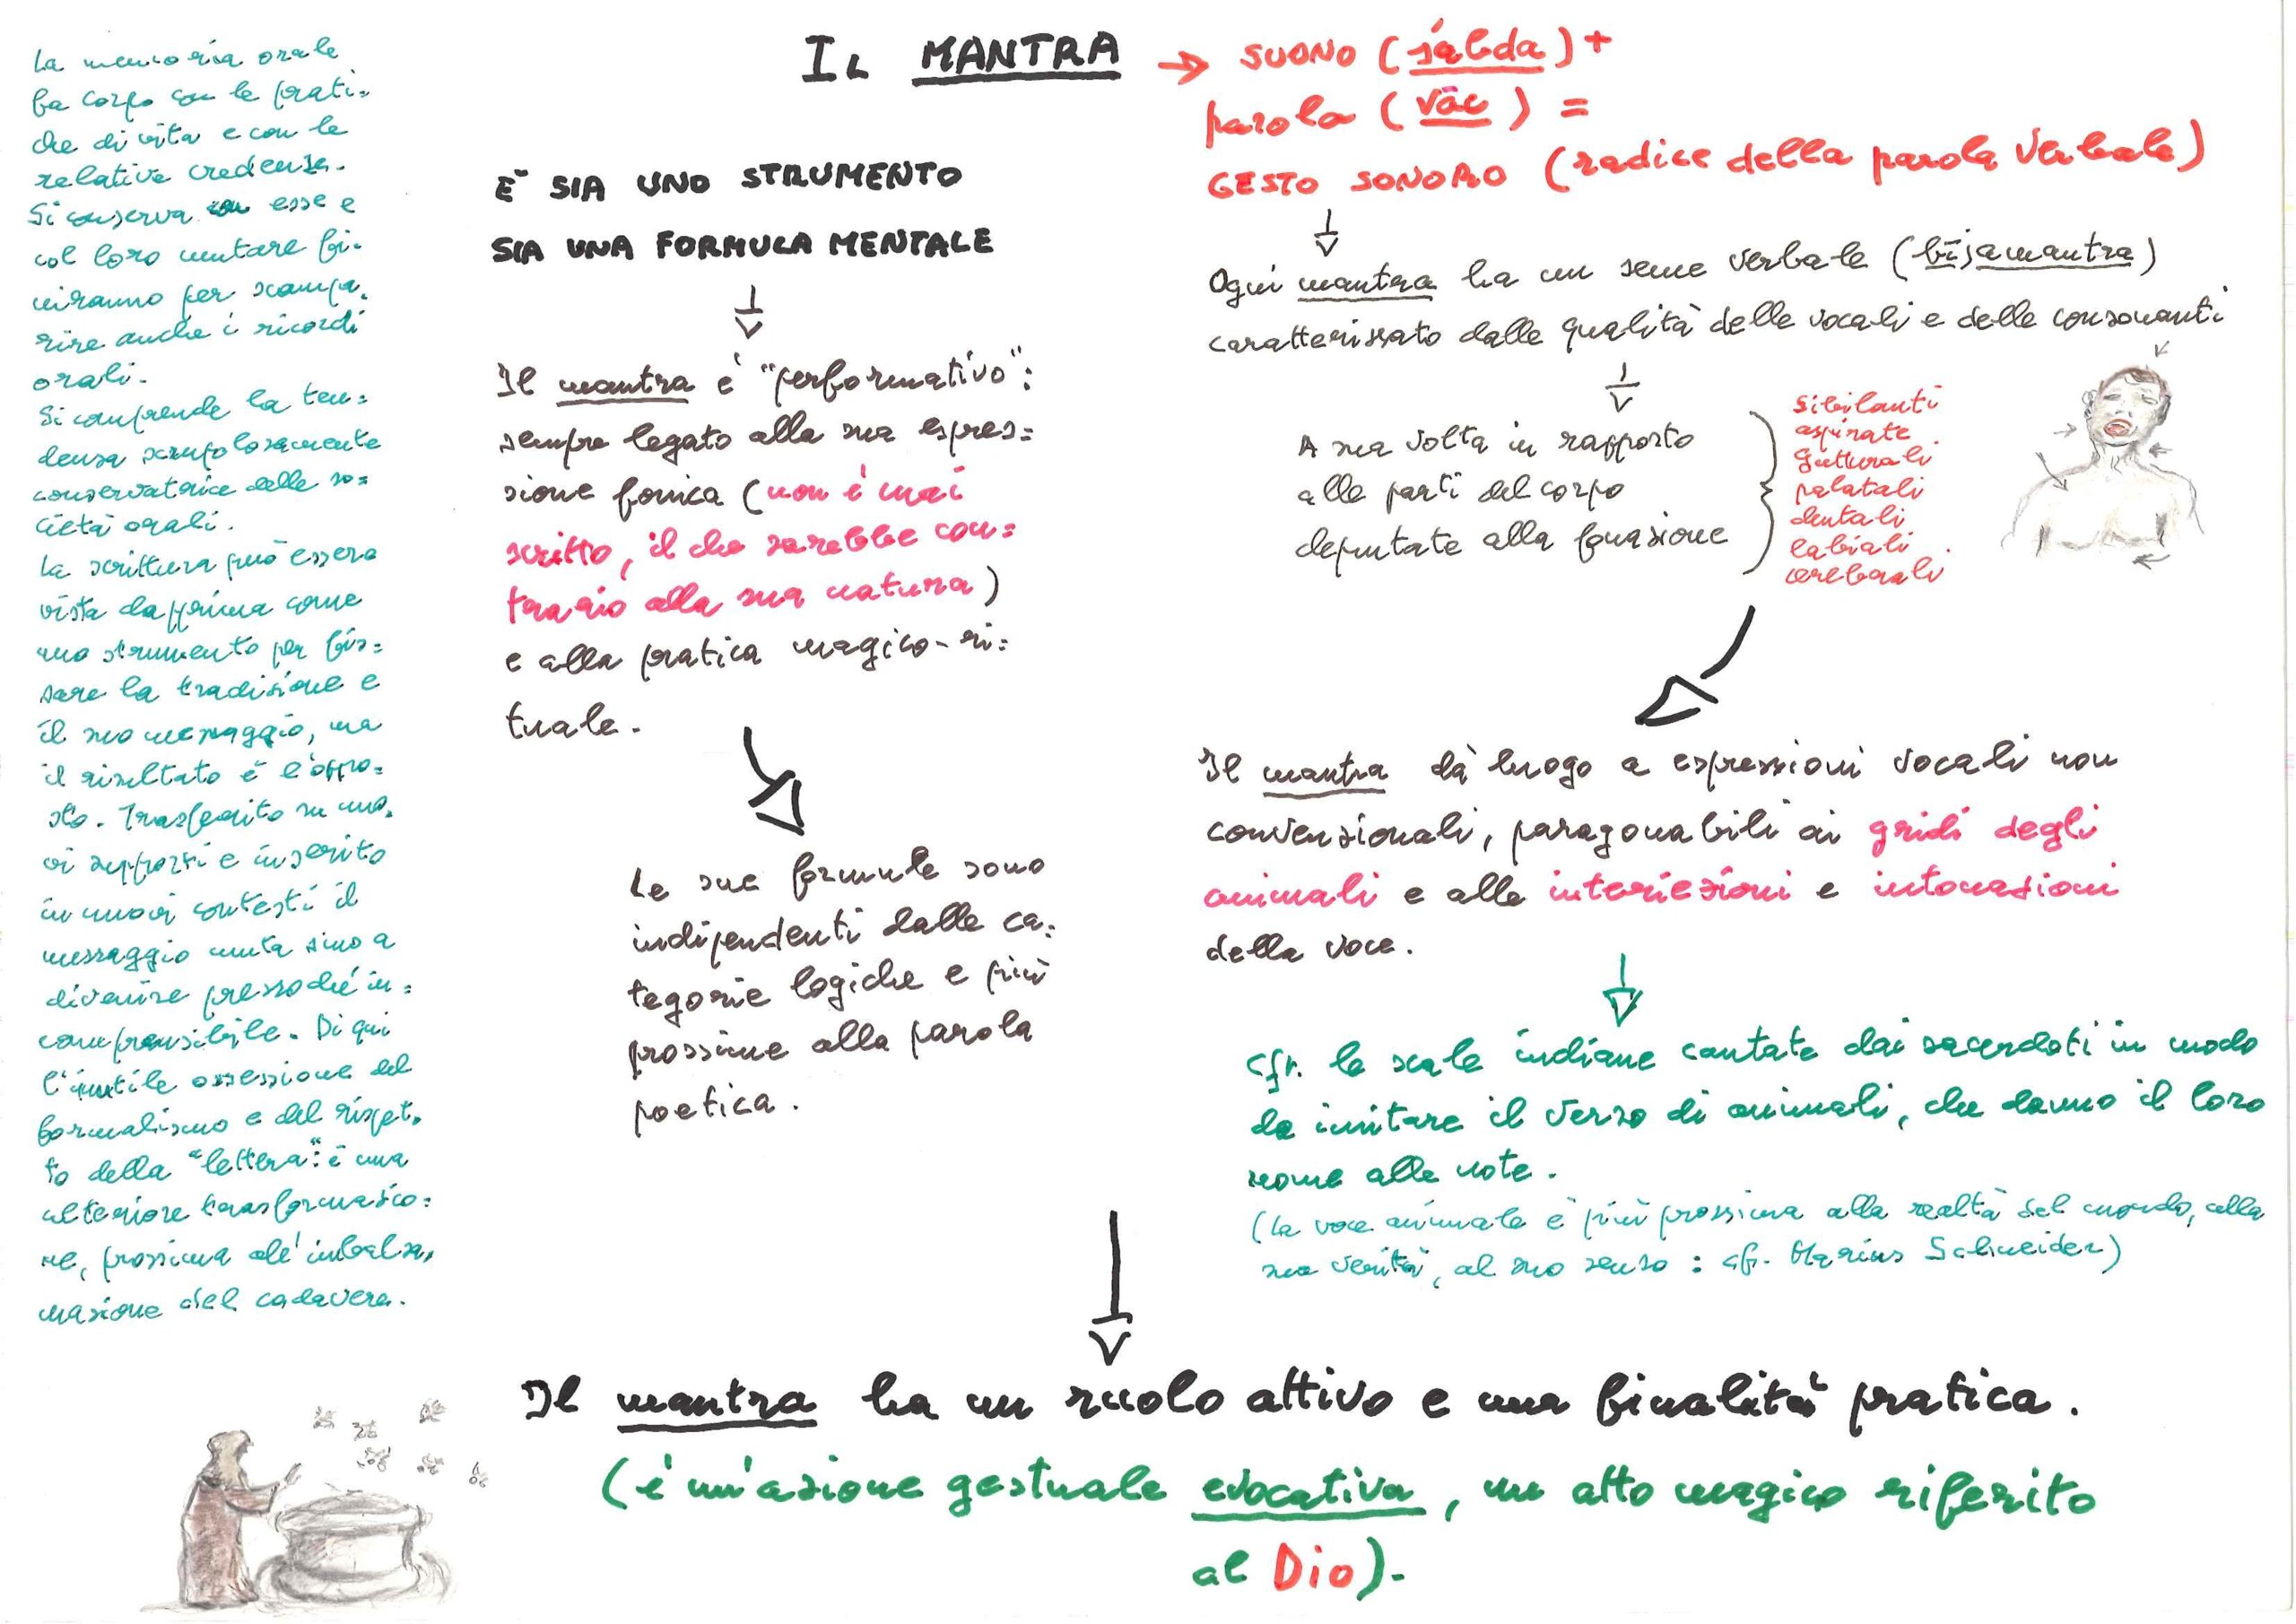 IL MANTRA → SUONO (śabda) +
parola (vāc) =
GESTO SONORO (radice della parola verbale)
La memoria orale
fa corpo con le prati=
che di vita e con le
relative credenze.
Si conserva con esse e
col loro mutare fi=
niranno per scompa=
rire anche i ricordi
orali.
Si comprende la ten=
denza scrupolosamente
conservatrice delle so=
cietà orali.
La scrittura può essere
vista dapprima come
uno strumento per fis=
sare la tradizione e
il suo messaggio, ma
il risultato è l'oppo=
sto. Trasferito su nuo=
vi supporti e inserito
in nuovi contesti il
messaggio muta sino a
divenire pressoché in=
comprensibile. Di qui
l'inutile ossessione del
formalismo e del rispet=
to della "lettera": è una
ulteriore trasformazio=
ne, prossima all'imbalsa=
mazione del cadavere.
È SIA UNO STRUMENTO
SIA UNA FORMULA MENTALE
Il mantra è "performativo":
sempre legato alla sua espres=
sione fonica (non è mai
scritto, il che sarebbe con=
trario alla sua natura)
e alla pratica magico-ri=
tuale.
Le sue formule sono
indipendenti dalle ca=
tegorie logiche e più
prossime alla parola
poetica.
Ogni mantra ha un seme verbale (bījamantra)
caratterizzato dalle qualità delle vocali e delle consonanti
A sua volta in rapporto
alle parti del corpo
deputate alla fonazione
sibilanti
aspirate
gutturali
palatali
dentali
labiali
cerebrali
Il mantra dà luogo a espressioni vocali non
convenzionali, paragonabili ai gridi degli
animali e alle interiezioni e intonazioni
della voce.
cfr. le scale indiane cantate dai sacerdoti in modo
da imitare il verso di animali, che danno il loro
nome alle note.
(la voce animale è più prossima alla realtà del mondo, alla
sua verità, al suo senso : cfr. Marius Schneider)
Il mantra ha un ruolo attivo e una finalità pratica.
(è un'azione gestuale evocativa, un atto magico riferito
al Dio).